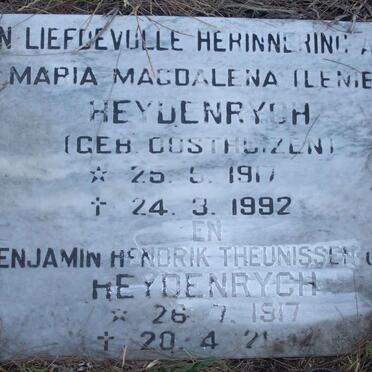 N LIEFDEVOLLE HERINNERING A
MARIA MAGDALENA (LENIE
HEYDENRYCH
(GEB. OOSTHUIZEN)
☆ 25. 5. 1917
† 24. 3. 1992
EN
ENJAMIN HENDRIK THEUNISSEN
HEYDENRYCH
☆ 26. 7. 1917
† 20. 4.